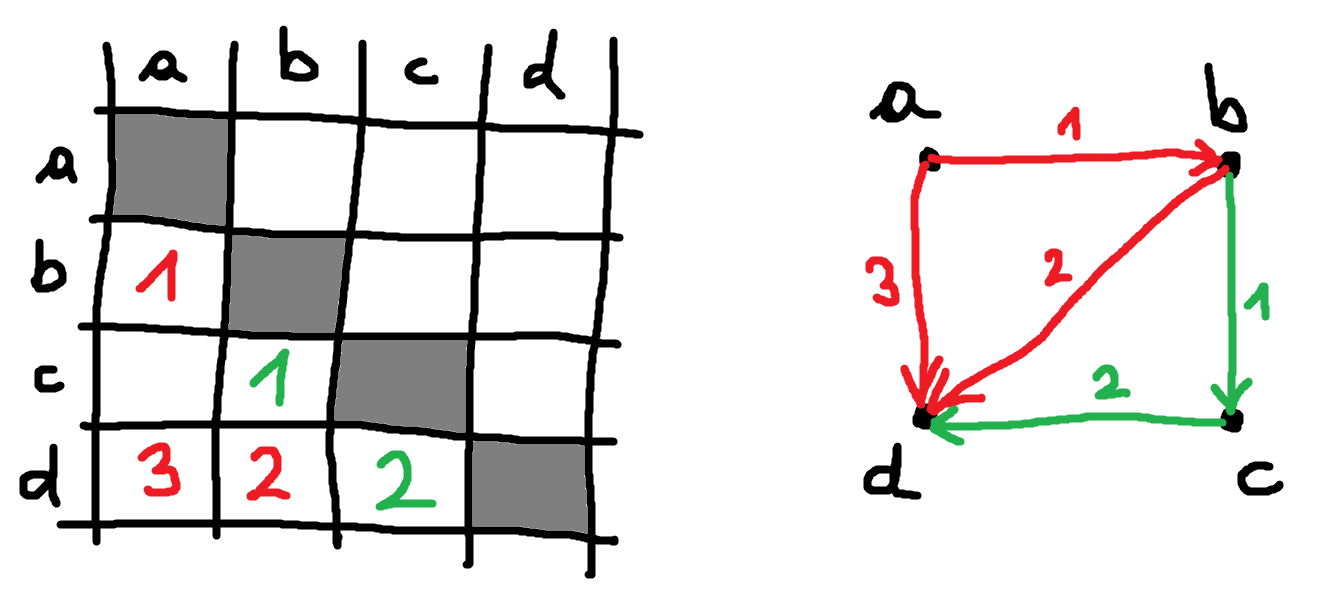 a b c d
a
b 1
c 1
d 3 2 2
a 1 b
3 2 1
2
d c